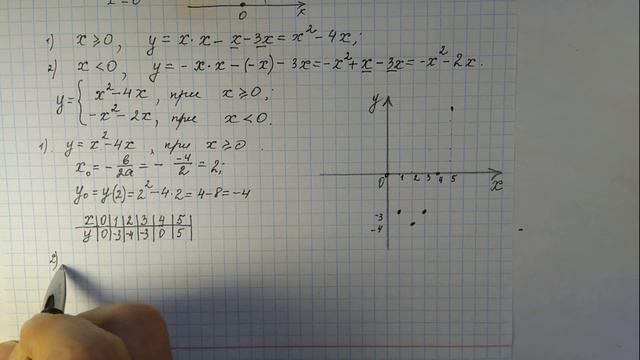 x=0
0 x
1) x⩾0, y = x·x − x − 3x = x² − 4x;
2) x<0, y = − x·x − (−x) − 3x = −x² + x − 3x = −x² − 2x.
y = { x² − 4x, при x⩾0;
−x² − 2x, при x<0.
1). y = x² − 4x, при x⩾0.
x₀ = − b/2a = − −4/2 = 2;
y₀ = y(2) = 2² − 4·2 = 4 − 8 = −4
x | 0 | 1 | 2 | 3 | 4 | 5 |
y | 0 | −3 | −4 | −3 | 0 | 5 |
2)
y
0 1 2 3 4 5 x
−3
−4